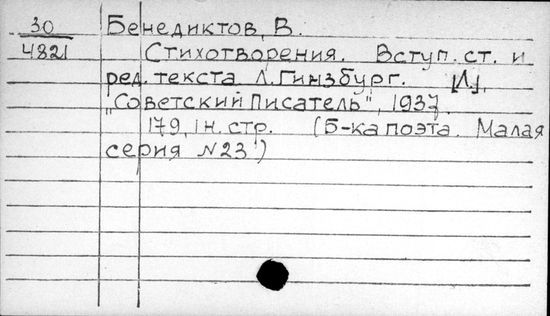 30 Бенедиктов, В.
4821 Стихотворения. Вступ. ст. и
ред. текста Л. Гинзбург. [Л.],
"Советский Писатель", 1937.
179, 1 н. стр. (Б-ка поэта. Малая
серия №23)